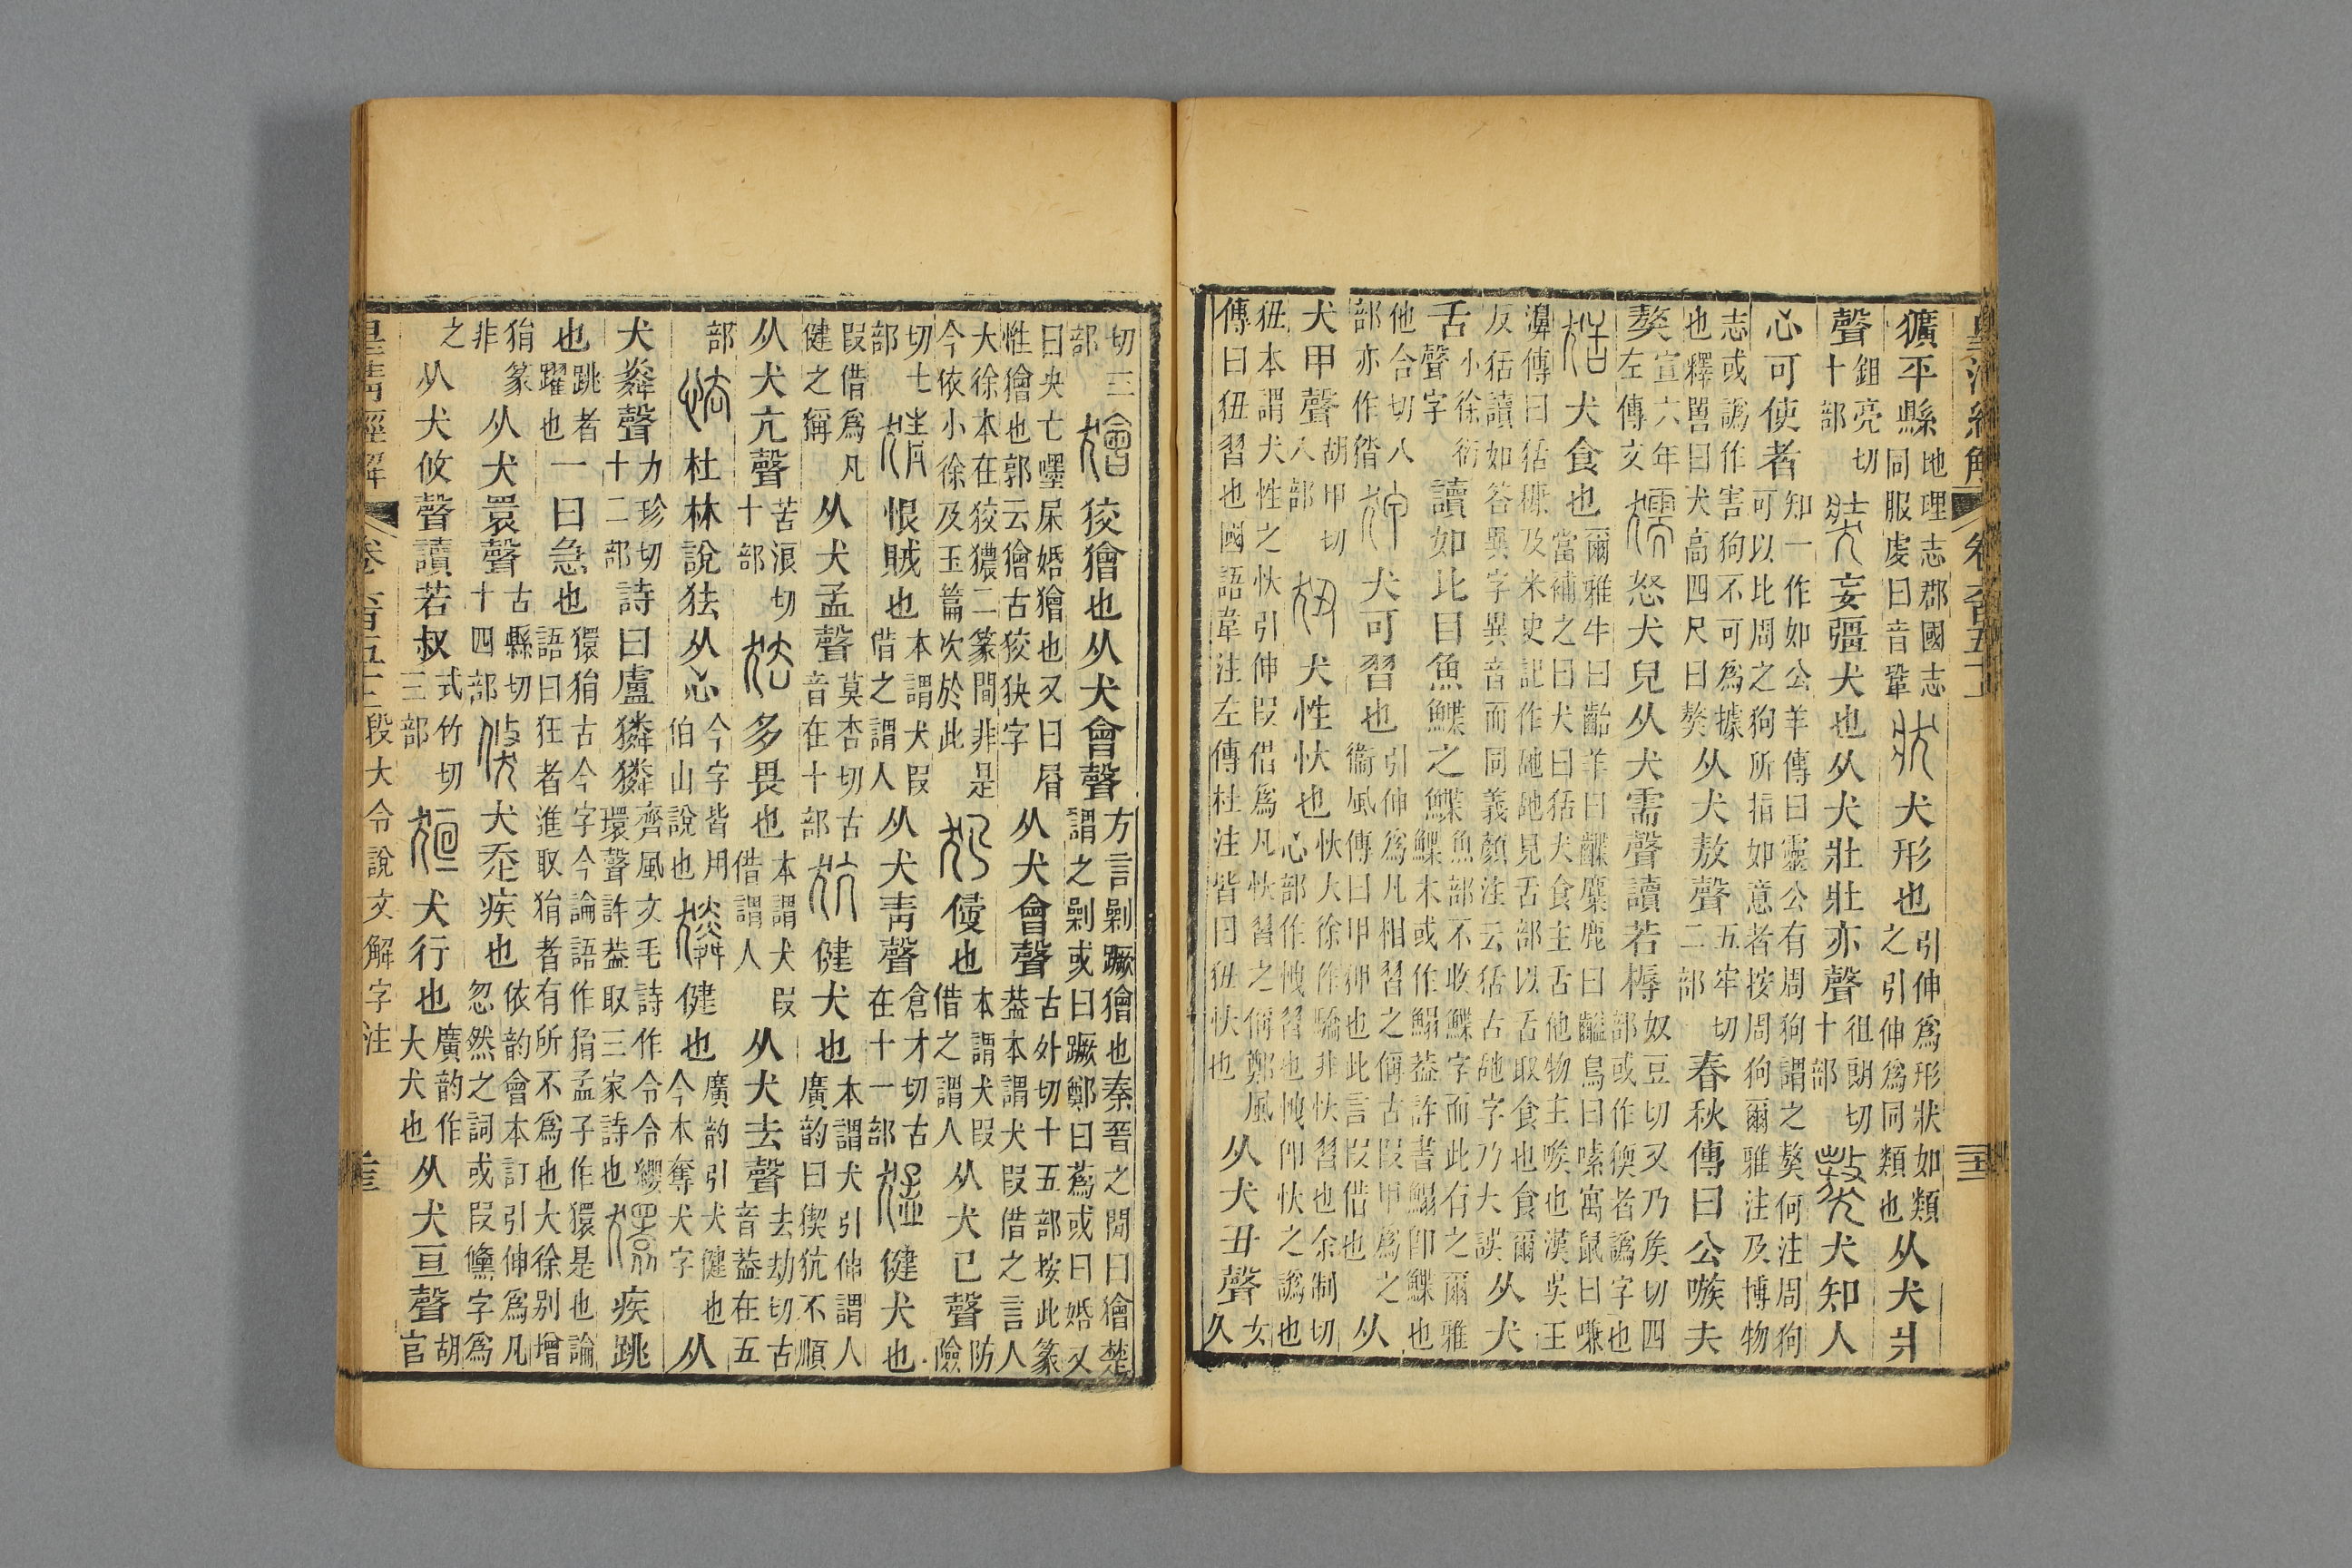 獷平縣地理志郡國志同服虔曰音鞏狀犬形也引伸爲形狀如類之引伸爲同類也从犬爿
聲鉏亮切十部奘妄彊犬也从犬壯壯亦聲徂朗切十部獒犬知人
心可使者知一作如公羊傳曰靈公有周狗謂之獒何注周狗可以比周之狗所指如意者按周狗爾雅注及博物
志或譌作害狗不可爲據也釋嘼曰犬高四尺曰獒从犬敖聲五牢切二部春秋傳曰公嗾夫
獒宣六年左傳文獳怒犬皃从犬需聲讀若槈奴豆切又乃矦切四部或作㹛者譌字也
狧犬食也爾雅牛曰齝羊曰齥麋鹿曰齸鳥曰嗉寓鼠曰嗛當補之曰犬曰狧犬食主舌他物主喉也漢吳王
濞傳曰狧穅及米史記作䑛䑛見舌部以舌取食也食爾反狧讀如荅異字異音而同義顏注云狧古䑛字乃大誤从犬
舌小徐衍聲字讀如比目魚鰈之鰈魚部不收鰈字而此有之爾雅鰈木或作鰨葢許書鰨卽鰈也
他合切八部亦作㗳狎犬可習也引伸爲凡相習之偁古叚甲爲之衞風傳曰甲狎也此言叚借也从
犬甲聲胡甲切八部狃犬性忕也忕大徐作驕非忕習也余制切心部作愧習也愧卽忕之譌也
狃本謂犬性之忕引伸叚借爲凡忕習之偁鄭風傳曰狃習也國語韋注左傳杜注皆曰狃忕也从犬丑聲女久
切三部獪狡獪也从犬會聲方言劋蹶獪也秦晉之閒曰獪楚謂之劋或曰蹶鄭曰蔿或曰婚又
曰央亡嚜㞘婚獪也又曰㞕性獪也郭云獪古狡狭字从犬會聲古外切十五部按此篆葢本謂犬叚借之言人
大徐本在狡獿二篆間非是今依小徐及玉篇次於此犯侵也本謂犬叚借之謂人从犬㔾聲防險
切七部猜恨賊也本謂犬叚借之謂人从犬青聲倉才切古在十一部猛健犬也
叚借爲凡健之稱从犬孟聲莫杏切古音在十部犺健犬也本謂犬引伸謂人廣韵曰𤟑犺不順
从犬亢聲苦浪切十部㹤多畏也本謂犬叚借謂人从犬去聲去劫切古音葢在五
部怯杜林說㹤从心今字皆用伯山說也㷠健也廣韵引犬健也今本奪犬字从
犬粦聲力珍切十二部詩曰盧獜獜齊風文毛詩作令令纓環聲許葢取三家詩也獧疾跳
也跳者躍也一曰急也獧狷古今字今論語作狷孟子作獧是也論語曰狂者進取狷者有所不爲也大徐别增
狷篆非从犬睘聲古縣切十四部倏犬走疾也依韵會本訂引伸爲凡忽然之詞或叚儵字爲
之从犬攸聲讀若叔式竹切三部狟犬行也廣韵作大犬也从犬亘聲胡官
皇淸經解 卷六百五十二 段大令說文解字注